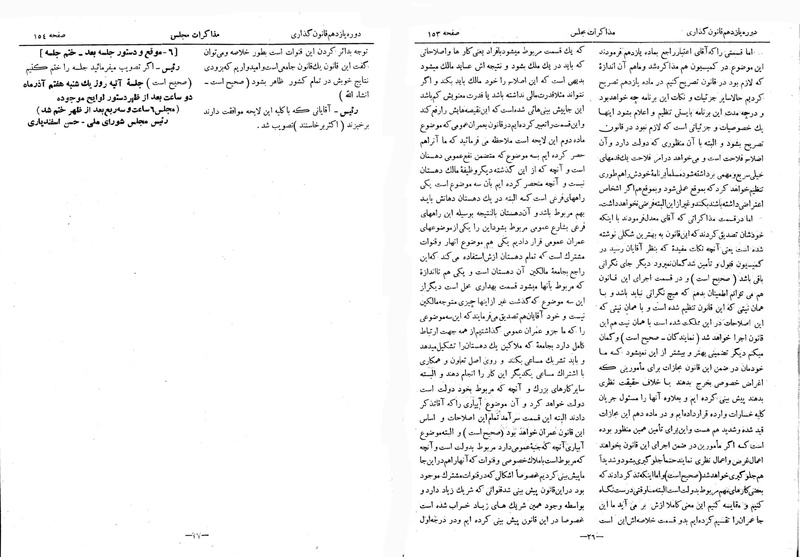 دوره یازدهم قانون‌گذاری
مذاکرات مجلس
صفحه ۱۵۳
اما قسمتی را که آقای اعتبار راجع بماده یازدهم فرمودند
این موضوع در کمیسیون هم مذاکره شد و ما هم آن اندازهٔ
که لازم بود در قانون تصریح کنیم در ماده یازدهم تصریح
کردیم حالا سایر جزئیات و نکات این برنامه چه خواهد بود
و درچه مدت این برنامه بایستی تنظیم و اعلام بشود اینها
یك خصوصیات و جزئیاتی است که لازم نبود در قانون
تصریح بشود و البته با آن منظوری که دولت دارد و آن
اصلاح فلاحت است و میخواهد در امر فلاحت یك قدمهای
خیلی سریع و مهمی برداشته شود مسلماً برنامهٔ خودش را هم طوری
تنظیم خواهد کرد که بموقع عملی شود و بموقع هم اگر اشخاص
اعتراضی داشته باشند بکنند و غیر از این البته فرضی نخواهد داشت.
اما در قسمت مذاکراتی که آقای معدل فرمودند با اینکه
خودشان تصدیق کردند که این قانون به بهترین شکلی نوشته
شده است یعنی آنچه نکات مفیدهٔ که بنظر آقایان رسید در
کمیسیون قبول و تأمین شد گمان نمیرود دیگر جای نگرانی
باقی باشد (صحیح است) و در قسمت اجرای این قانون
هم می توانم اطمینان بدهم که هیچ نگرانی نباید باشد و با
همان نیتی که این قانون تنظیم شده است و با همان نیتی که
این اصلاحات در این مملکت شده است با همان نیت هم این
قانون اجرا خواهد شد (نمایندگان - صحیح است) و گمان
میکنم دیگر تضمینی بهتر و بیشتر از این نمیشود که ما
خودمان در ضمن این قانون مجازات برای مأمورینی که
اغراض خصوصی بخرج بدهند یا خلاف حقیقت نظری
بدهند پیش بینی کرده ایم و بعلاوه آنها را مسئول جریان
کلیه خسارات وارده قرار داده‌ایم و در ماده دهم این مجازات
قید شده و شدید هم هست و این برای تأمین همین منظور بوده
است که اگر مأمورین در ضمن اجرای این قانون بخواهند
اعمال غرض و اعمال نظری نمایند حتماً جلوگیری بشود و شدیداً
هم جلوگیری خواهد شد (صحیح است) و اما اینکه تذکر دادند که
بعضی کارهای مهم مربوط بدولت است البته ما وقتی درست نگاه
کنیم و مقایسه کنیم این معنی کاملا از ش بر می آید ما این
جا عمران را تقسیم کرده ایم بدو قسمت خلاصه‌اش این است
که یك قسمت مربوط میشود بافراد یعنی کار ها و اصلاحاتی
که باید در یك ملك بشود و نتیجه اش عساید مالك میشود
بدیهی است که این اصلاح را خود مالك باید بکند و اگر
نتواند مثلا قدرت مالی نداشته باشد یا قدرت معنویش کم باشد
این جا پیش بینی هائی شده است که این نقیصه هایش را رفع کند
و این قسمت را تعبیر کرده ایم در قانون بعمران عمومی که موضوع
ماده دوم این لایحه است ملاحظه می فرمائید که ما آنرا هم
حصر کرده ایم بسه موضوع که متضمن نفع عمومی دهستان
است و آنچه که از این گذشته دیگر وظیفهٔ مالك دهستان
نیست و آنچه منحصر کرده ایم بآن سه موضوع است یکی
راههای فرعی است که البته در یك دهستان دهاتش باید
بهم مربوط باشد و آن دهستان بالنتیجه بوسیله این راههای
فرعی بشارع عمومی مربوط بشود این را یکی از موضوعهای
عمران عمومی قرار دادیم یکی هم موضوع انهار و قنوات
مشترك است که تمام دهستان ازش استفاده می کند که این
راجع بجامعهٔ مالکین آن دهستان است و یکی هم تا اندازهٔ
که مربوط بآنها میشود قسمت بهداری محل است دیگر از
این سه موضوع که گذشت غیر از اینها چیزی متوجه مالکین
نیست و خود آقایان هم تصدیق میفرمایند که این سه موضوعی
را که ما جزو عمران عمومی گذاشتیم از همه جهت ارتباط
کامل دارد بجامعهٔ که ملاکین یك دهستان را تشکیل میدهد
و باید تشریك مساعی بکنند و روی اصل تعاون و همکاری
با اشتراك مساعی یکدیگر این کار را انجام دهند و البته
سایر کارهای بزرگ و آنچه که مربوط بخود دولت است
دولت خواهد کرد و آن موضوع آبیاری را که آقا تذکر
دادند البته این قسمت سرآمد تمام این اصلاحات و اساس
این قانون عمران خواهد بود (صحیح است) و البته موضوع
آبیاری آنچه که جنبهٔ عمومی دارد مربوط بدولت است و آنچه
که مربوط است باملاك خصوصی و قنوات که آنهارا هم در این جا
ما پیش بینی کردیم خصوصاً اشکالی که در قنوات مشترك موجود
بود در این قانون پیش بینی شد قنواتی که شریك زیاد دارد و
بواسطه وجود همین شریك های زیاد خراب شده است
خصوصا در این قانون پیش بینی کرده ایم و در درجهٔ اول
—۲۶—
دوره یازدهم قانون‌گذاری
مذاکرات مجلس
صفحه ۱۵۴
توجه بدائر کردن این قنوات است بطور خلاصه و می‌توان
گفت این قانون یك قانون جامعی است و امیدواریم که بزودی
نتایج خوبش در تمام کشور ظاهر بشود (صحیح است -
انشاء الله)
رئیس - آقایانی که با کلیه این لایحه موافقت دارند
برخیزند (اکثر برخاستند) تصویب شد.
[۶ - موقع و دستور جلسه بعد - ختم جلسه]
رئیس - اگر تصویب میفرمائید جلسه را ختم کنیم
(صحیح است) جلسهٔ آتیه روز یك شنبه هفتم آذر ماه
دو ساعت بعد از ظهر دستور لوایح موجوده
(مجلس ۶ ساعت و سه ربع بعد از ظهر ختم شد)
رئیس مجلس شورای ملی - حسن اسفندیاری
—۲۷—